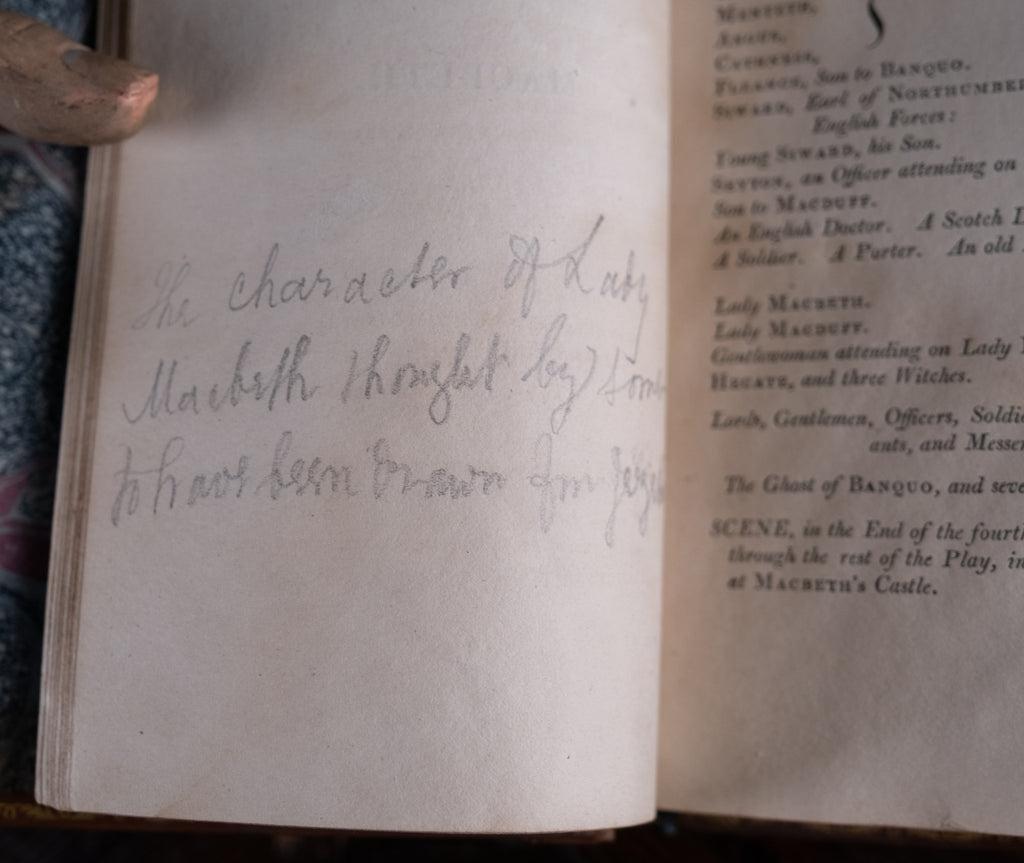 The character of Lady
Macbeth thought by some
to have been drawn from
MENTETH,
ANGUS,
CATHNESS,
FLEANCE, Son to BANQUO.
SIWARD, Earl of NORTHUMBER
English Forces:
Young SIWARD, his Son.
SEYTON, an Officer attending on
Son to MACDUFF.
An English Doctor. A Scotch D
A Soldier. A Porter. An old
Lady MACBETH.
Lady MACDUFF.
Gentlewoman attending on Lady
HECATE, and three Witches.
Lords, Gentlemen, Officers, Soldie
ants, and Messen
The Ghost of BANQUO, and seve
SCENE, in the End of the fourth
through the rest of the Play, in
at MACBETH's Castle.